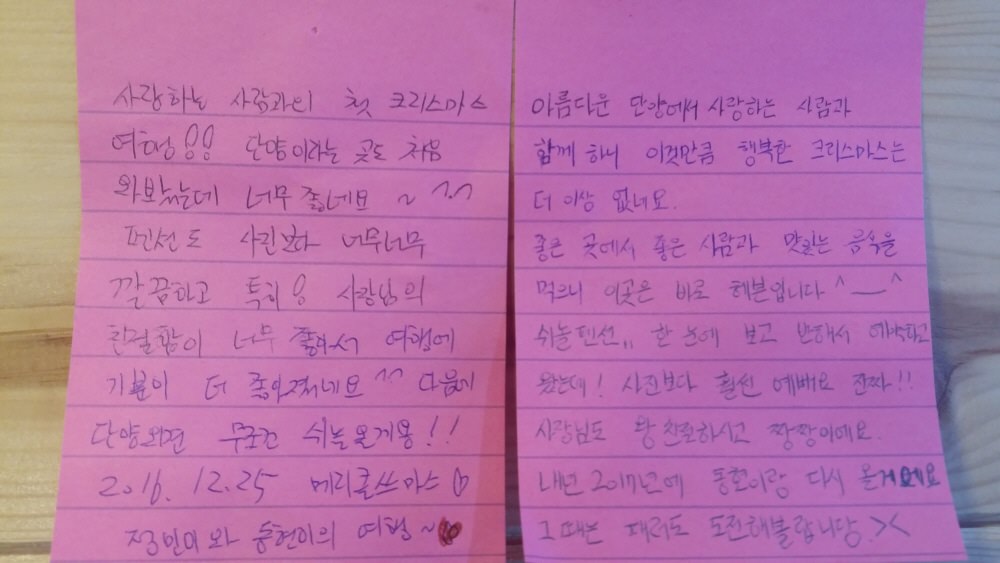 사랑하는 사람과의 첫 크리스마스
여행!! 단양이라는 곳도 처음
와봤는데 너무 좋네요 ~ ^^
펜션도 사진보다 너무너무
깔끔하고 특히! 사장님의
친절함이 너무 좋아서 여행에
기분이 더 좋아졌네요 ^^ 다음에
단양오면 무조건 쉬놀올게용!!
2016. 12.25 메리클쓰마스♡
정민이와 동현이의 여행~♥
아름다운 단양에서 사랑하는 사람과
함께 하니 이것만큼 행복한 크리스마스는
더 이상 없네요.
좋은 곳에서 좋은 사람과 맛있는 음식을
먹으니 이곳은 바로 헤븐입니다 ^__^
쉬놀펜션,, 한 눈에 보고 반해서 예약하고
왔는데! 사진보다 훨씬 예뻐요 진짜!!
사장님도 왕 친절하시고 짱짱이에요.
내년 2017년에 다시 올게요
그때는 도전해볼랍니당. ><